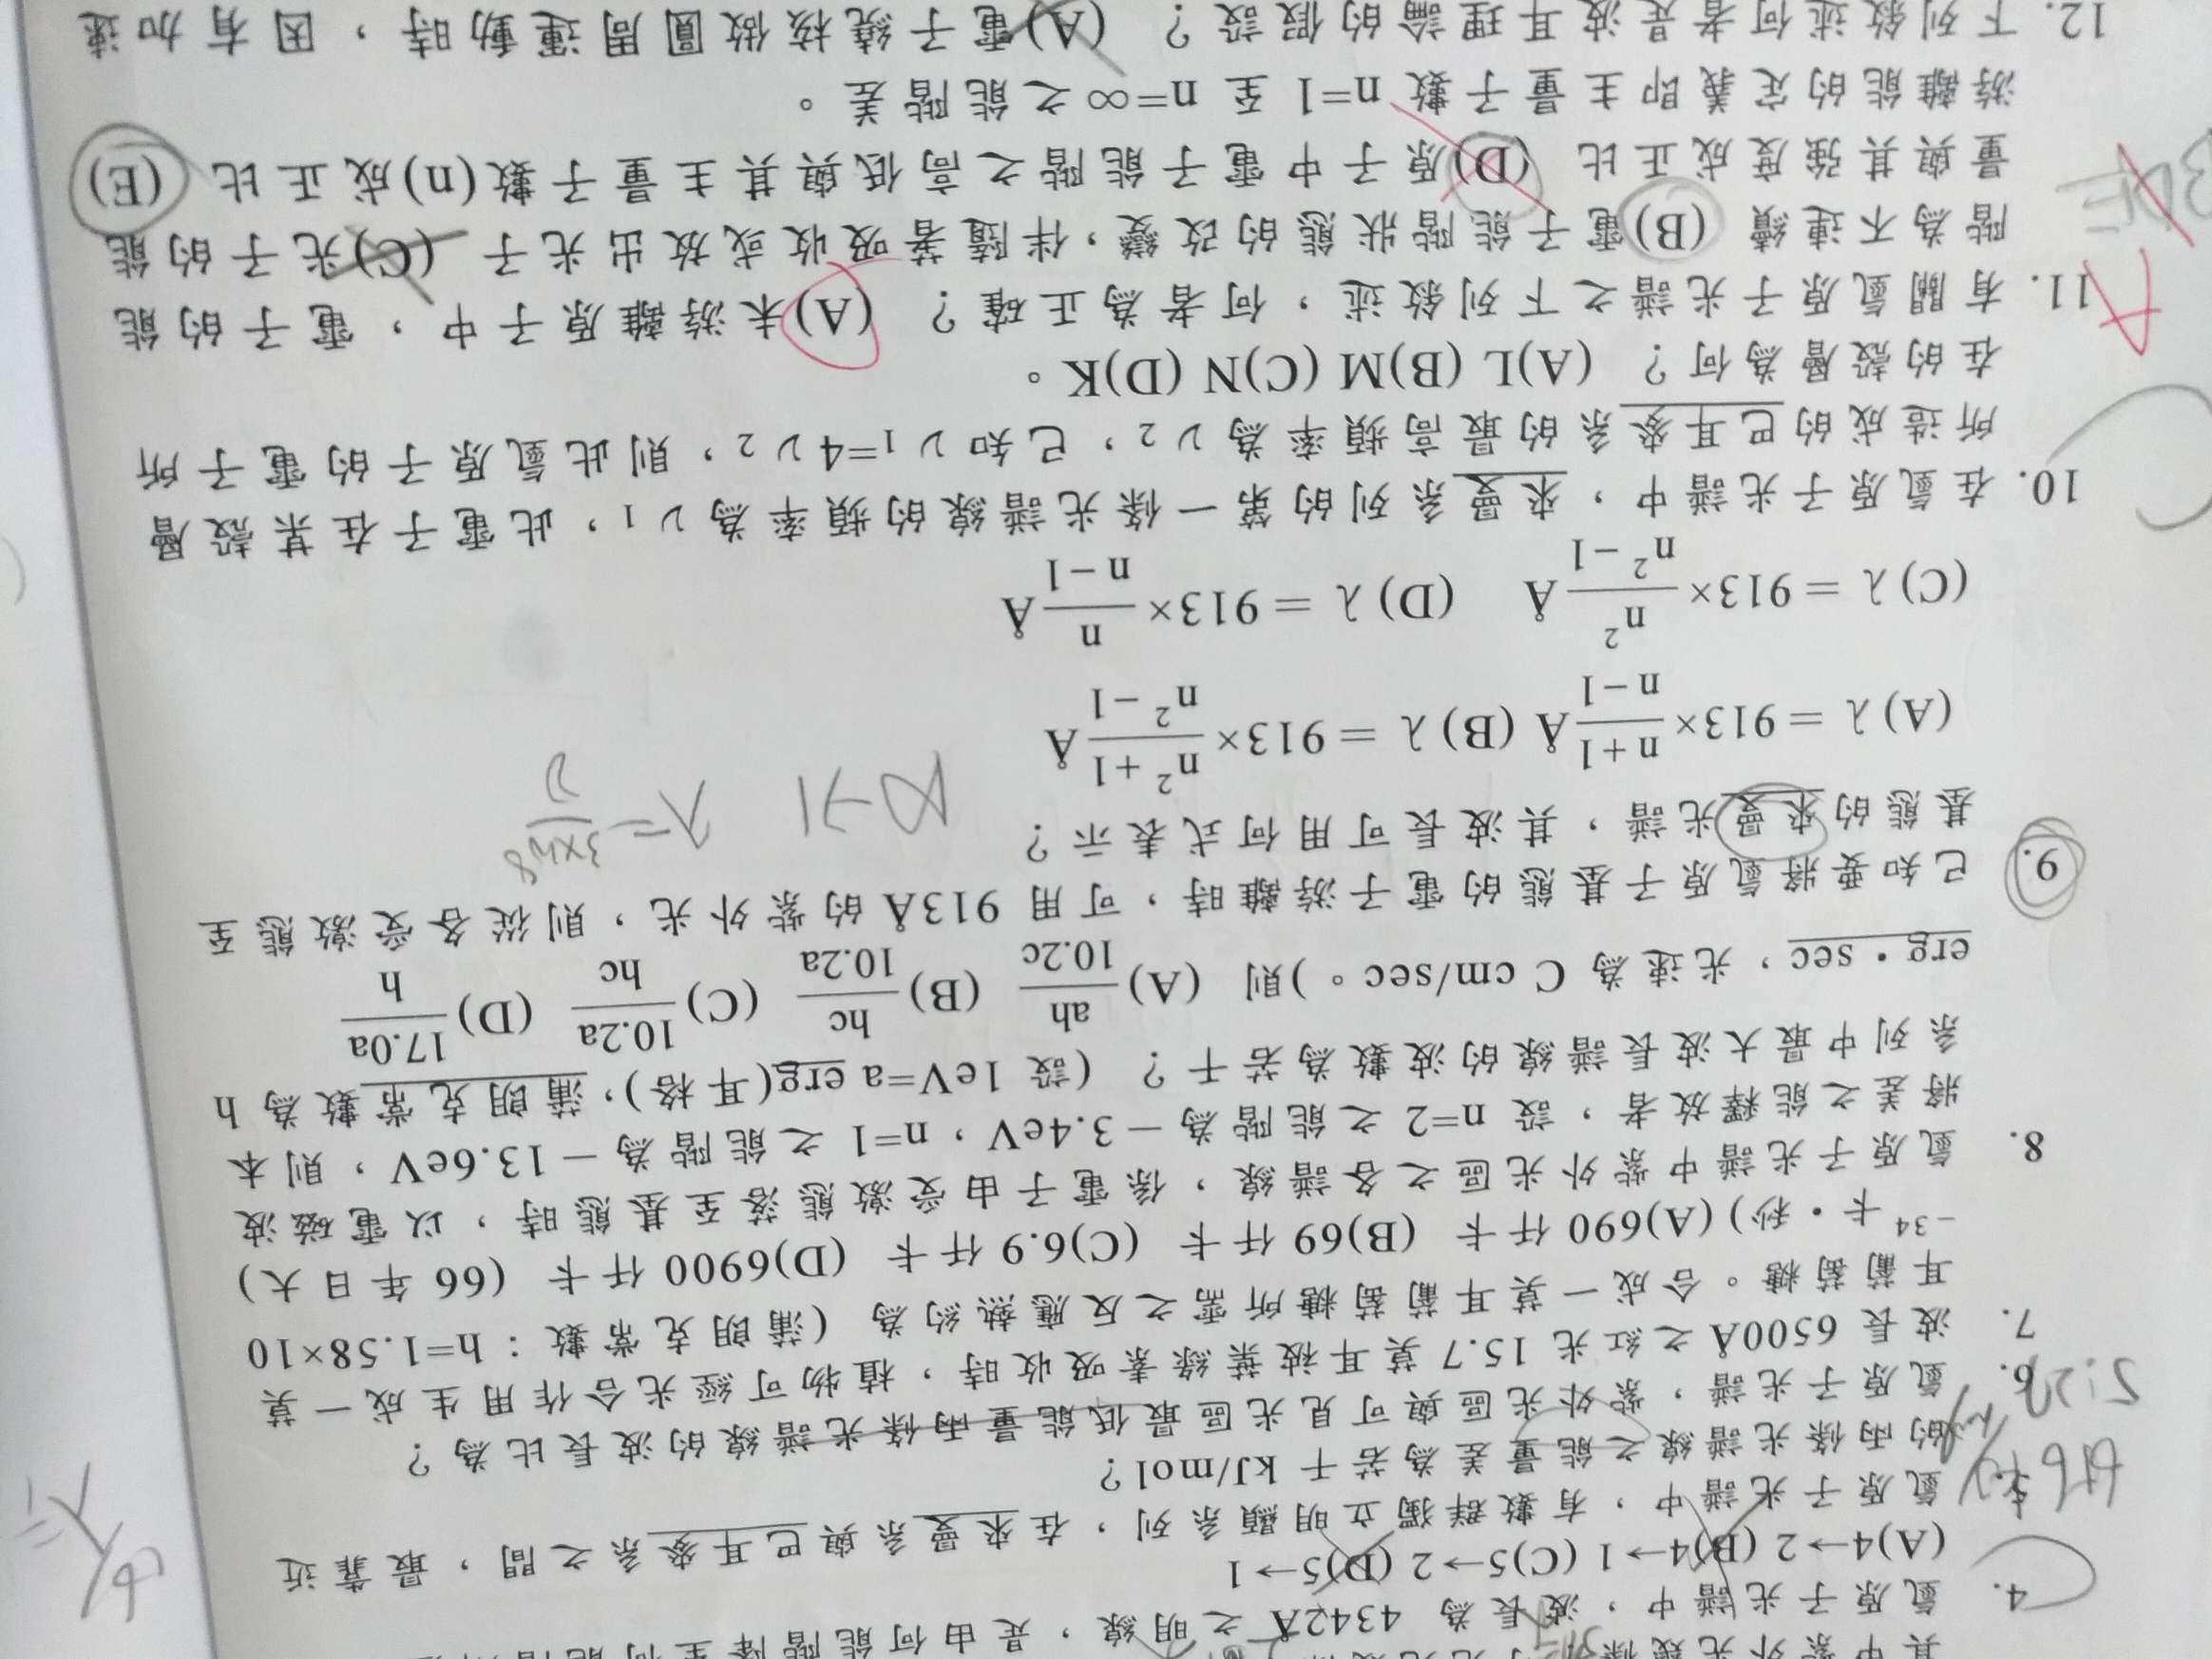 4. 氫原子光譜中，波長為 4342Å 之明線，是由何能階降至何能階
(A)4→2 (B)4→1 (C)5→2 (D)5→1
5. 氫原子光譜中，有數群獨立明顯系列，在來曼系與巴耳麥系之間，最靠近
的兩條光譜線之能量差為若干 kJ/mol？
6. 氫原子光譜，紫外光區與可見光區最低能量兩條光譜線的波長比為？
7. 波長 6500Å 之紅光 15.7 莫耳被葉綠素吸收時，植物可經光合作用生成一莫
耳葡萄糖。合成一莫耳葡萄糖所需之反應熱約為（蒲朗克常數：h=1.58×10
⁻³⁴卡・秒）(A)690 仟卡 (B)69 仟卡 (C)6.9 仟卡 (D)6900 仟卡（66 年日大）
8. 氫原子光譜中紫外光區之各譜線，係電子由受激態落至基態時，以電磁波
將差之能釋放者，設 n=2 之能階為－3.4eV，n=1 之能階為－13.6eV，則本
系列中最大波長譜線的波數為若干？（設 1eV=a erg(耳格)，蒲朗克常數為 h
erg・sec，光速為 C cm/sec。）則 (A) ah/10.2c (B) hc/10.2a (C) 10.2a/hc (D) 17.0a/h
9. 已知要將氫原子基態的電子游離時，可用 913Å 的紫外光，則從各受激態至
基態的來曼光譜，其波長可用何式表示？
∞→1 λ=3×10⁸/ν
(A) λ＝913×(n+1)/(n−1)Å (B) λ＝913×(n²+1)/(n²−1)Å
(C) λ＝913×n²/(n²−1)Å (D) λ＝913×n/(n−1)Å
10. 在氫原子光譜中，來曼系列的第一條光譜線的頻率為 ν₁，此電子在某殼層
所造成的巴耳麥系的最高頻率為 ν₂，已知 ν₁=4ν₂，則此氫原子的電子所
在的殼層為何？ (A)L (B)M (C)N (D)K。
11. 有關氫原子光譜之下列敘述，何者為正確？ (A)未游離原子中，電子的能
階為不連續 (B)電子能階狀態的改變，伴隨著吸收或放出光子 (C)光子的能
量與其強度成正比 (D)原子中電子能階之高低與其主量子數(n)成正比 (E)
游離能的定義即主量子數 n=1 至 n=∞之能階差。
12. 下列敘述何者是波耳理論的假設？ (A)電子繞核做圓周運動時，因有加速